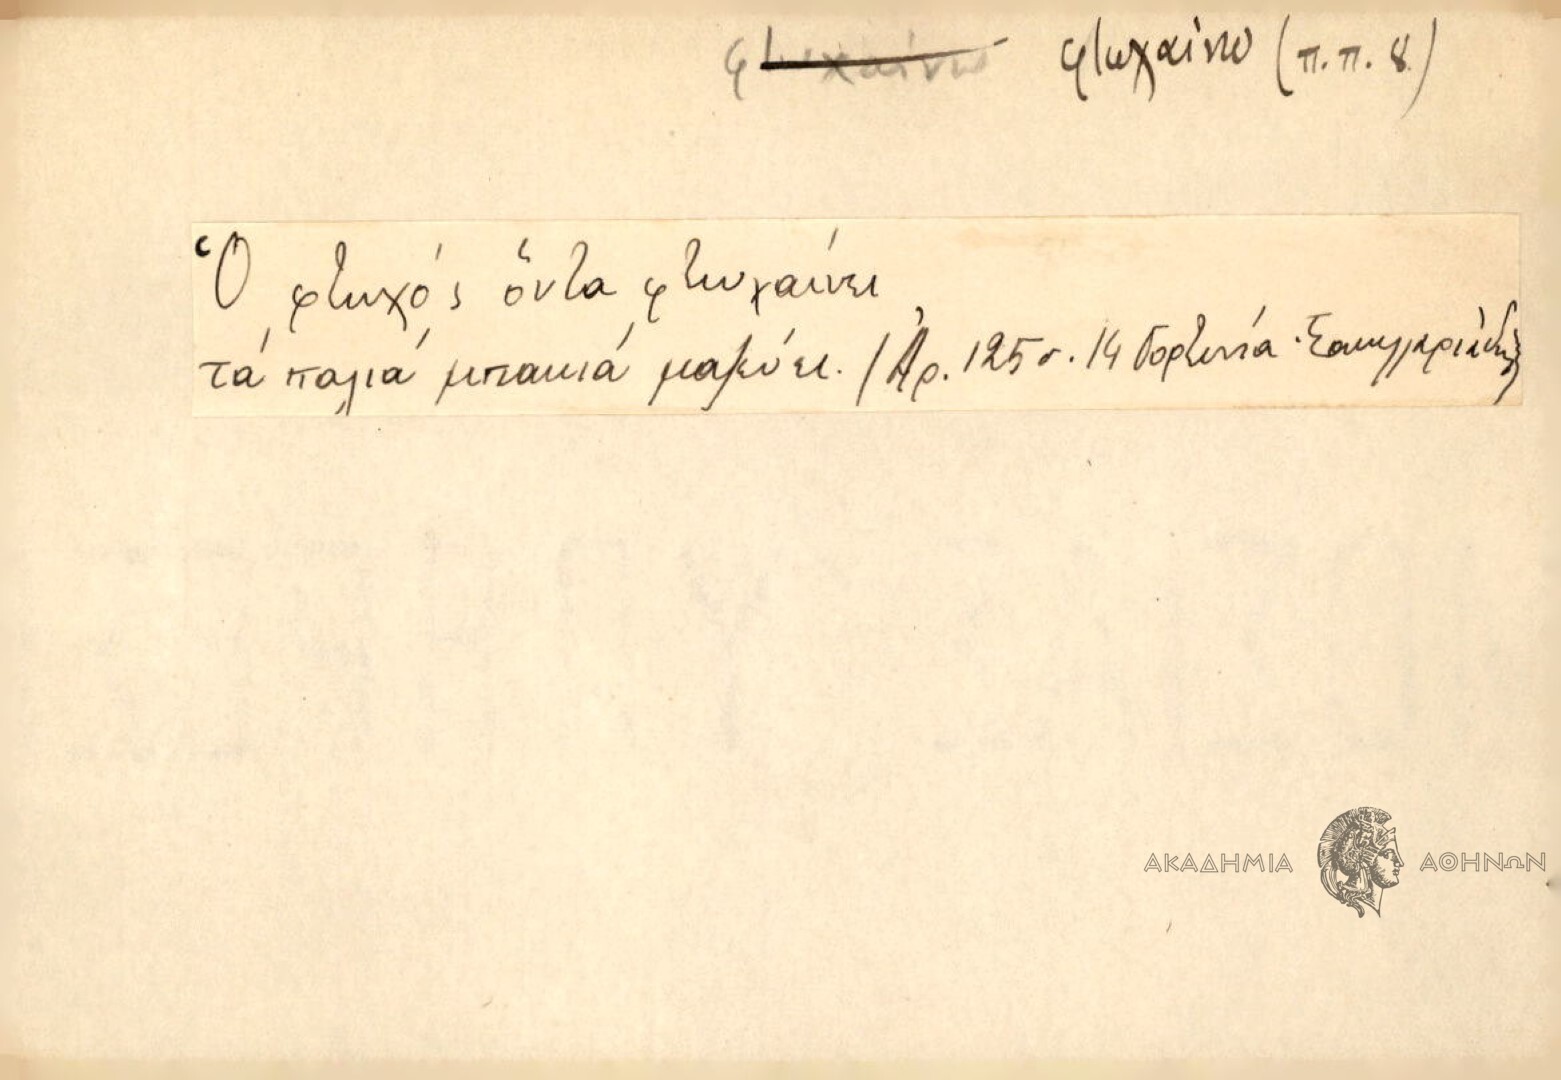 φτωχαίνω φτωχαίνω (π.π. 8)
Ὁ φτωχός ὅντα φτωχαίνει
τά παλιά μπακιά μαζεύει. / Ἀρ. 125 σ. 14 Γορτυνία
ΑΚΑΔΗΜΙΑ ΑΘΗΝΩΝ